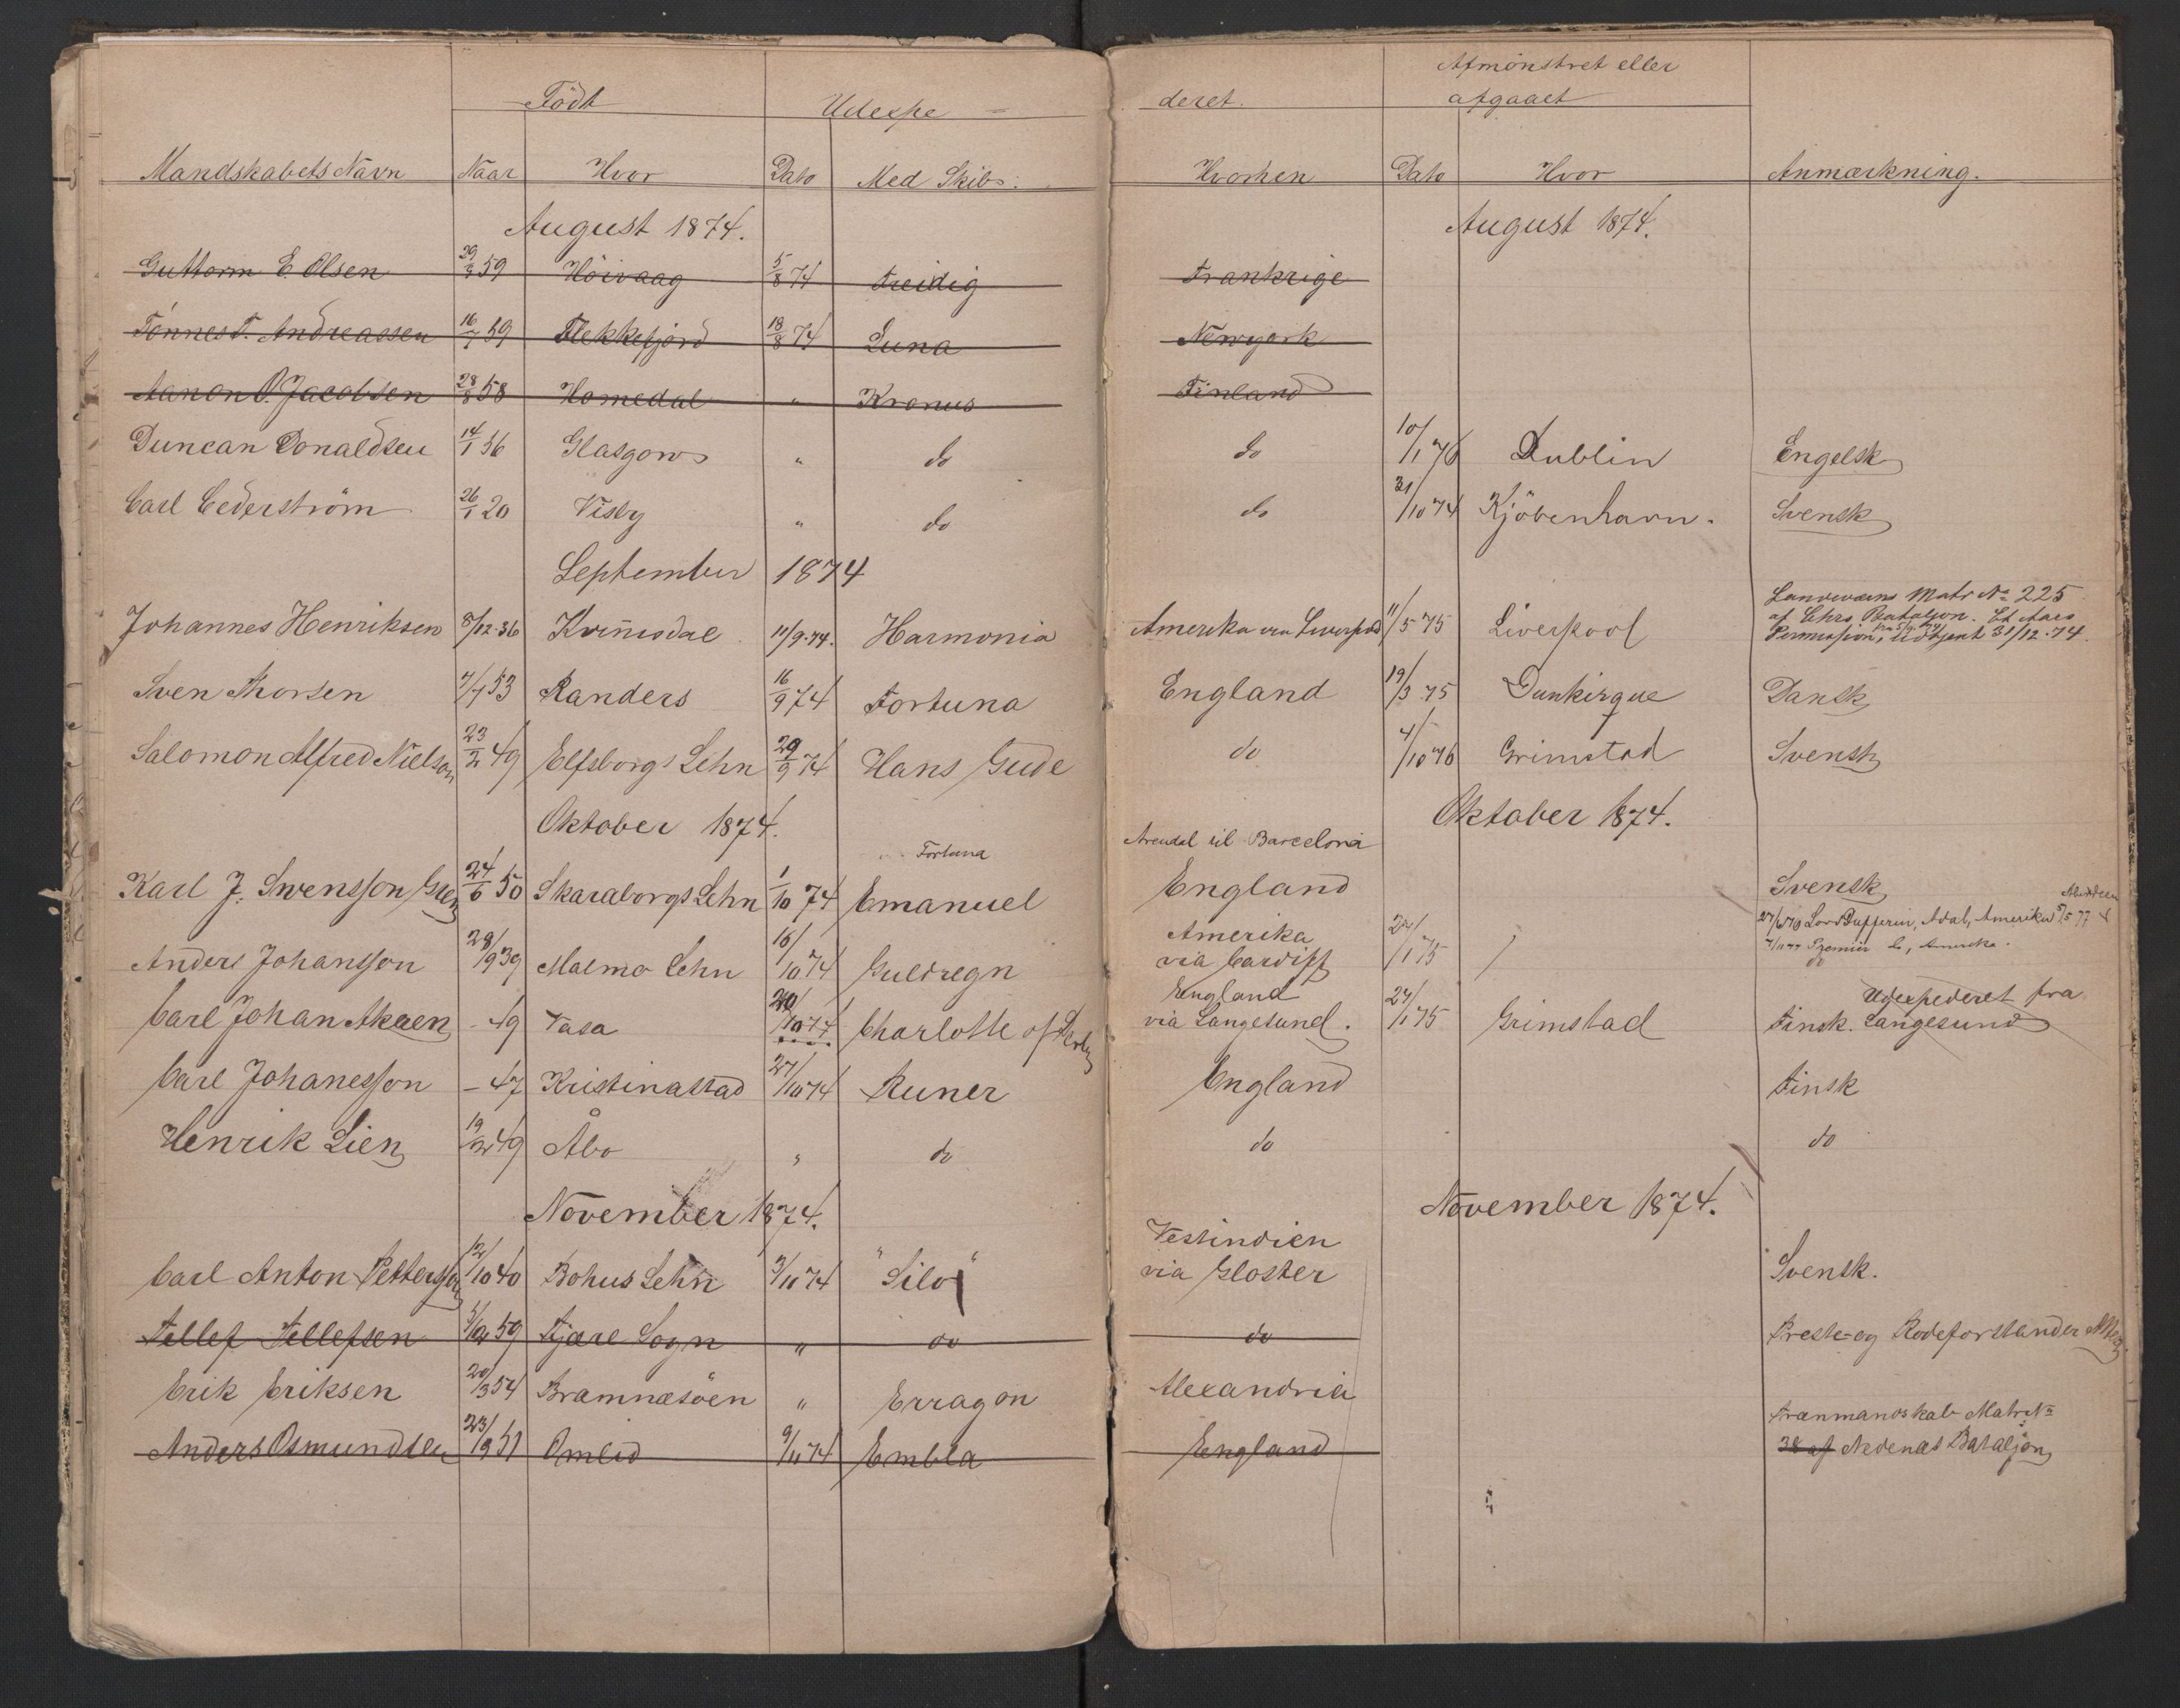 Födt Udexpe- deret. Afmönstret eller
afgaaet
Mandskabets Navn Naar Hvor Dato Med Skibs. Hvorhen Dato Hvor Anmærkning.
August 1874. August 1874.
Guttorm E. Olsen 29/3 59 Höivaag 5/8 74 Freidig Frankrige
Tönnes T. Andreassen 16/7 59 Flekkefjord 18/8 74 Luna Newyork
Aanon O. Jacobsen 28/8 58 Homedal " Kronus Finland
Duncan Donaldsen 14/1 36 Glasgow " do do 10/1 76 Dublin Engelsk
Carl Cederström 26/1 20 Visby " do do 31/10 74 Kjöbenhavn. Svensk
September 1874
Johannes Henriksen 8/12.36 Kvinisdal 11/9.74. Harmonia Amerika via Liverpool 11/5 75 Liverpool Landeværns Matr No 225
af Chrs. Bataljon. Et Aars
Permission, Udtjent 31/12.74.
Sven Thorsen 7/7 53 Randers 16/9 74 Fortuna England 19/3 75 Dunkirque Dansk
Salomon Alfred Nielson 23/2 49 Elfsborgs Lehn 29/9 74 Hans Gude do 4/10 76 Grimstad Svensk
Oktober 1874. Oktober 1874.
Fortuna Arendal til Barcelona
Karl J. Swensson 24/6 50 Skaraborgs Lehn 1/10 74 Emanuel England Svensk
27/6 76 Lord Dufferin, Adal, Amerika 5/5 77
7/11 77 Premier do, Amerika.
Anders Johansson 28/9 39 Malmo Lehn 16/10 74 Guldregn Amerika
via Cardiff 24/1 75 do
Carl Johan Akaen - 49 Vasa 20/10 74 Charlotte of England
via Langesund. 24/1 75 Grimstad Finsk. Udexpederet fra
Langesund
Carl Johanesson - 47 Kristinastad 27/10 74 Runer England Finsk
Henrik Lien 19/2 49 Åbo " do do do
November 1874. November 1874.
Carl Anton Pettersson 12/10 40 Bohus Lehn 3/11 74 "Silo" Vestindien
via Gloster Svensk.
Tellef Tellefsen 5/12 59 Fjære Sogn " do do Preste- og Rodeforstander
Erik Eriksen 20/3 54 Bramnæsöen " Erragon Alexandria
Anders Osmundsen 23/9 51 Omlid 9/11 74 Embla England Trænmandskab Matr No
38 af Nedenæs Bataljon